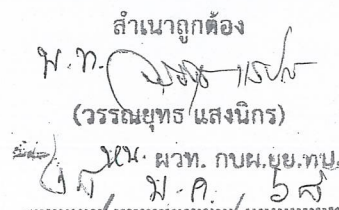 สำเนาถูกต้อง
พ.ท.
(วรรณยุทธ แสงนิกร)
หน. ผวท. กบผ.ยย.ทบ.
ม.ค. ๖๘